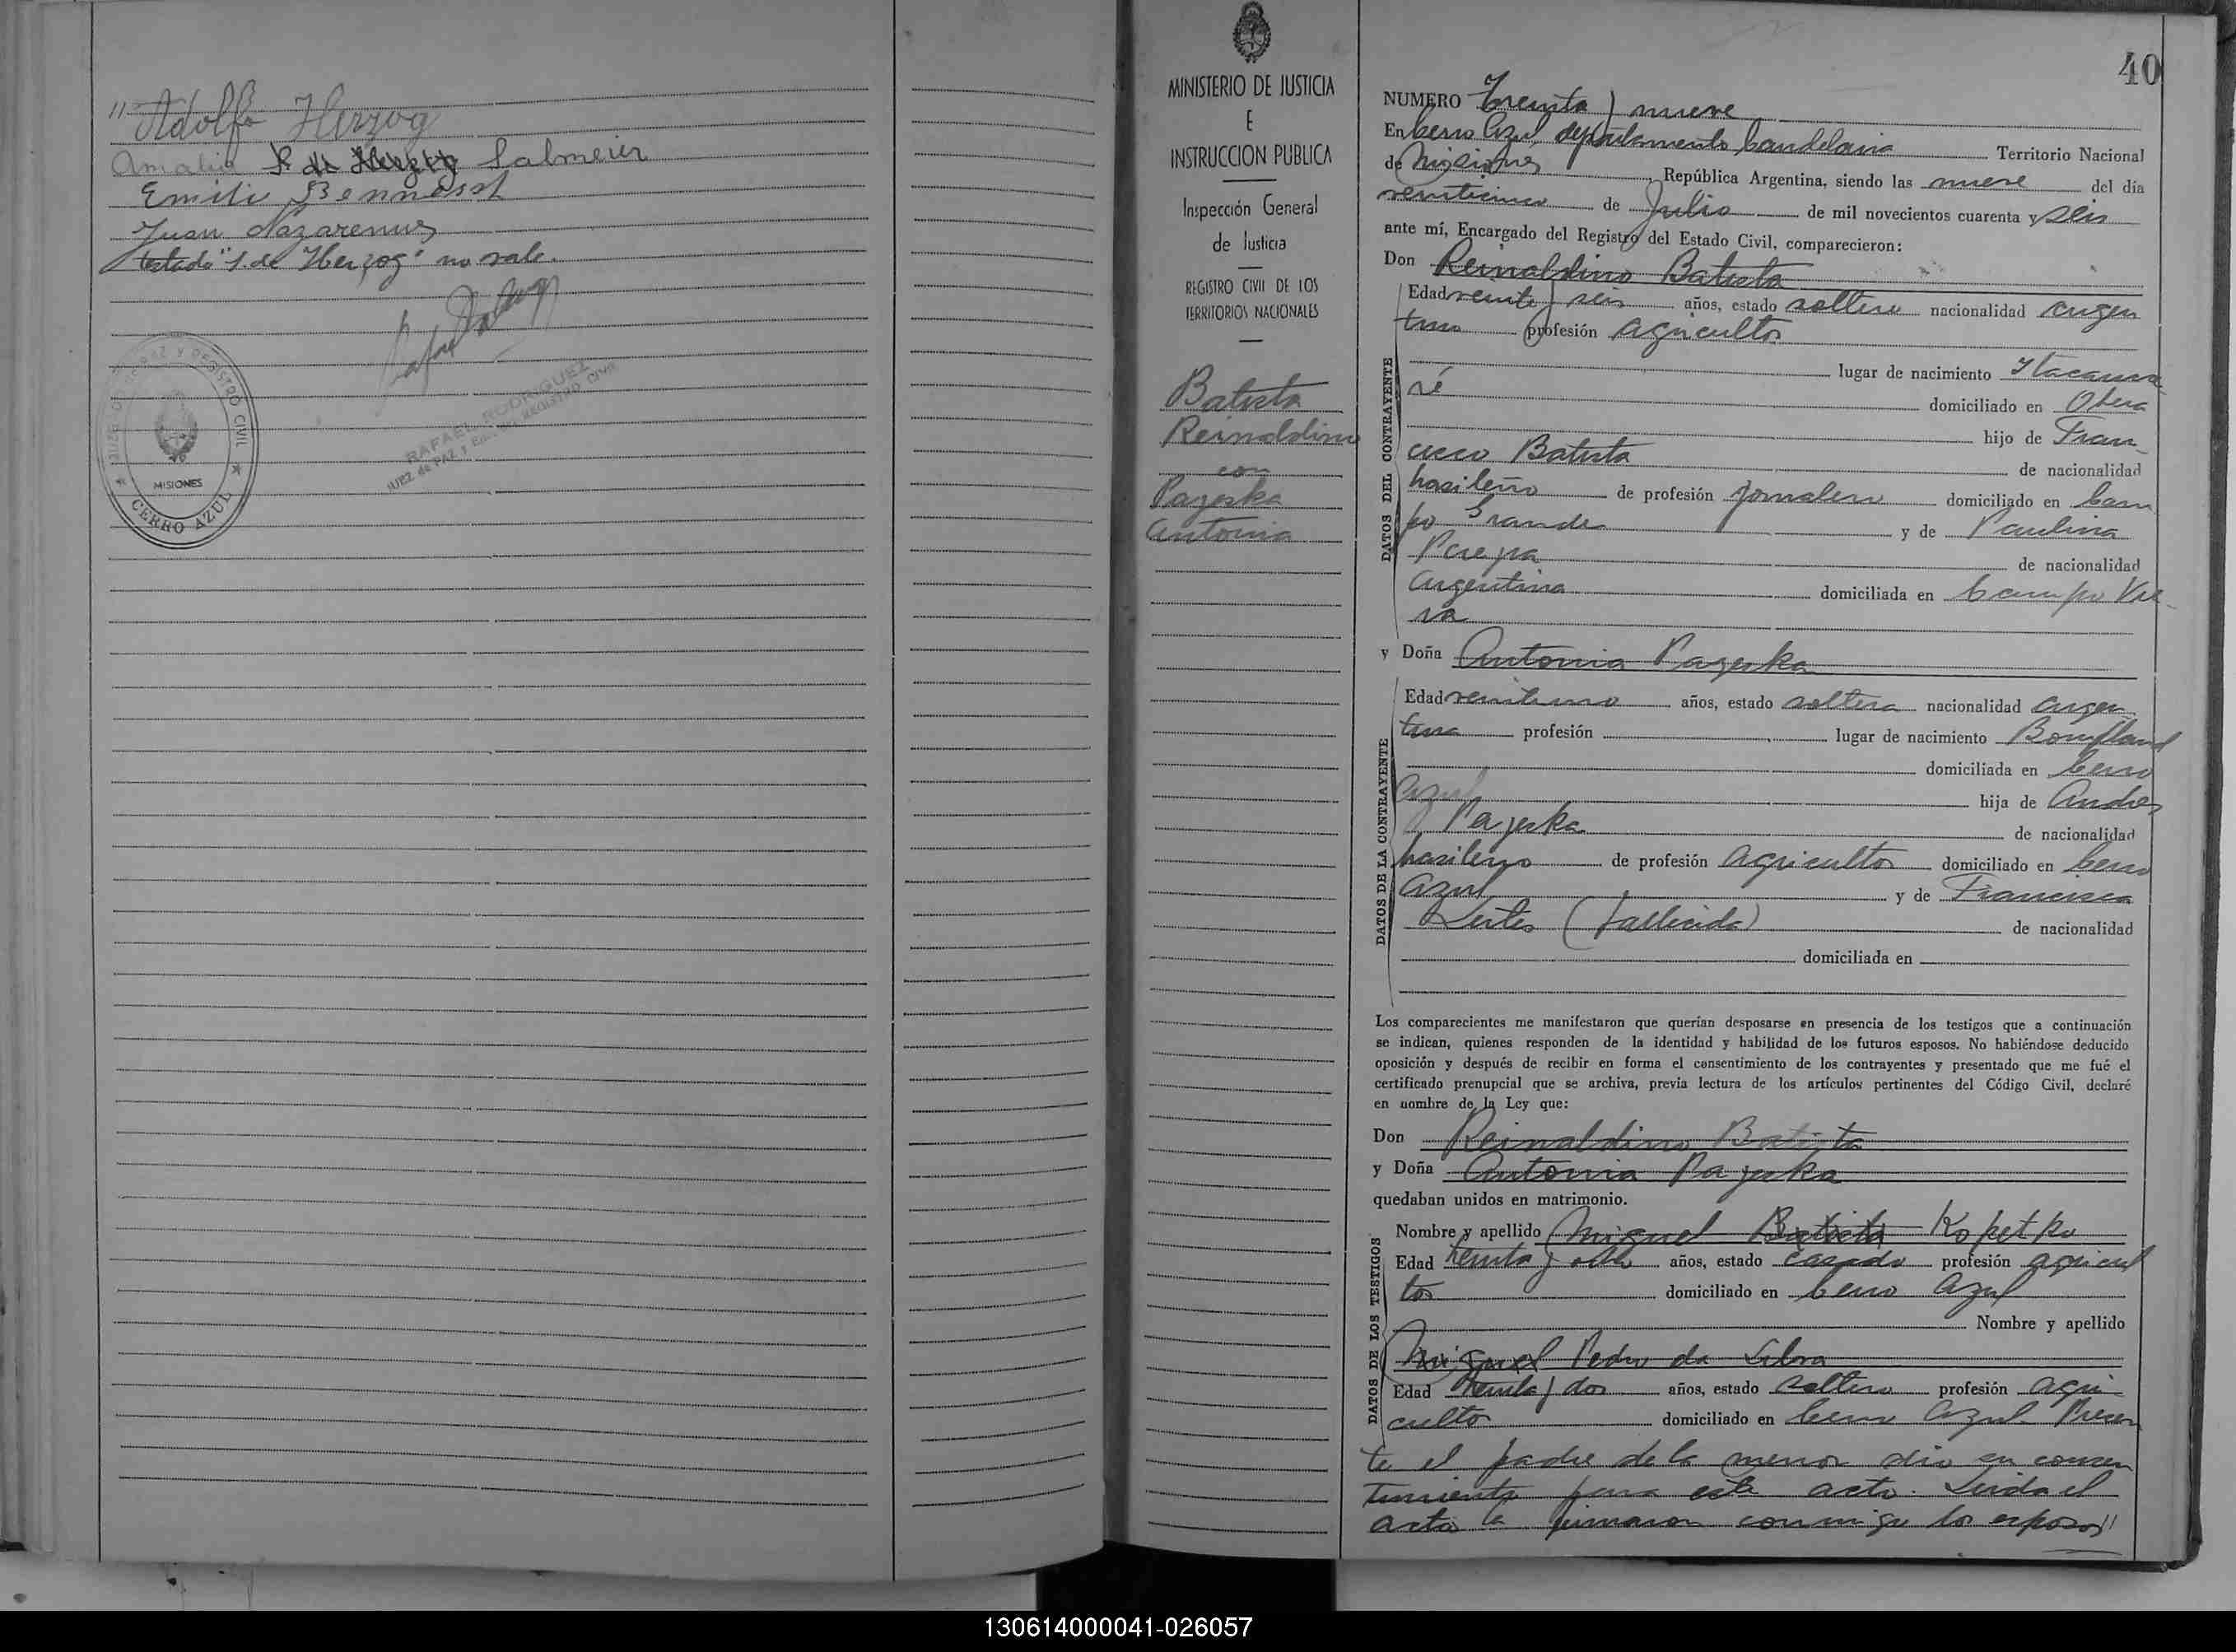 "Adolfo Herzog
Amalia S. de Herzog Salmeier
Emilio
Juan Nazarenus
testado "S. de Herzog" no vale.
JUEZ DE PAZ Y REGISTRO CIVIL
MISIONES
CERRO AZUL
RAFAEL RODRIGUEZ
JUEZ de PAZ y Enc. del REGISTRO CIVIL
MINISTERIO DE JUSTICIA
E
INSTRUCCION PUBLICA
Inspección General
de Justicia
REGISTRO CIVIL DE LOS
TERRITORIOS NACIONALES
Batista
Reinaldino
con
Payeska
Antonia
40
NUMERO Treinta y nueve
En Cerro Azul, departamento Candelaria Territorio Nacional
de Misiones, República Argentina, siendo las nueve del día
veinticinco de Julio de mil novecientos cuarenta y seis
ante mí, Encargado del Registro del Estado Civil, comparecieron:
Don Reinaldino Batista
DATOS DEL CONTRAYENTE
Edad veinte y seis años, estado soltero nacionalidad argen
tino profesión agricultor
lugar de nacimiento Itacarua
ré domiciliado en Obera
hijo de Fran
cisco Batista de nacionalidad
brasileño de profesión jornalero domiciliado en Cam
po Grande y de Paulina
Pereyra de nacionalidad
argentina domiciliada en Campo Vie
ra
y Doña Antonia Payeska
DATOS DE LA CONTRAYENTE
Edad veintiuno años, estado soltera nacionalidad argen
tina profesión lugar de nacimiento Bonpland
domiciliada en Cerro
Azul hija de Andres
Payeska de nacionalidad
brasilero de profesión agricultor domiciliado en Cerro
Azul y de Francisca
Leites (fallecida) de nacionalidad
domiciliada en
Los comparecientes me manifestaron que querían desposarse en presencia de los testigos que a continuación
se indican, quienes responden de la identidad y habilidad de los futuros esposos. No habiéndose deducido
oposición y después de recibir en forma el consentimiento de los contrayentes y presentado que me fué el
certificado prenupcial que se archiva, previa lectura de los artículos pertinentes del Código Civil, declaré
en nombre de la Ley que:
Don Reinaldino Batista
y Doña Antonia Payeska
quedaban unidos en matrimonio.
DATOS DE LOS TESTIGOS
Nombre y apellido Miguel Batista Kopetko
Edad treinta y ocho años, estado casado profesión agricul
tor domiciliado en Cerro Azul
Nombre y apellido
Miguel Pedro da Silva
Edad treinta y dos años, estado soltero profesión agri
cultor domiciliado en Cerro Azul. Presen
te el padre de la menor dio su consen
timiento para este acto. Leida el
acta la firmaron conmigo los esposos"
130614000041-026057